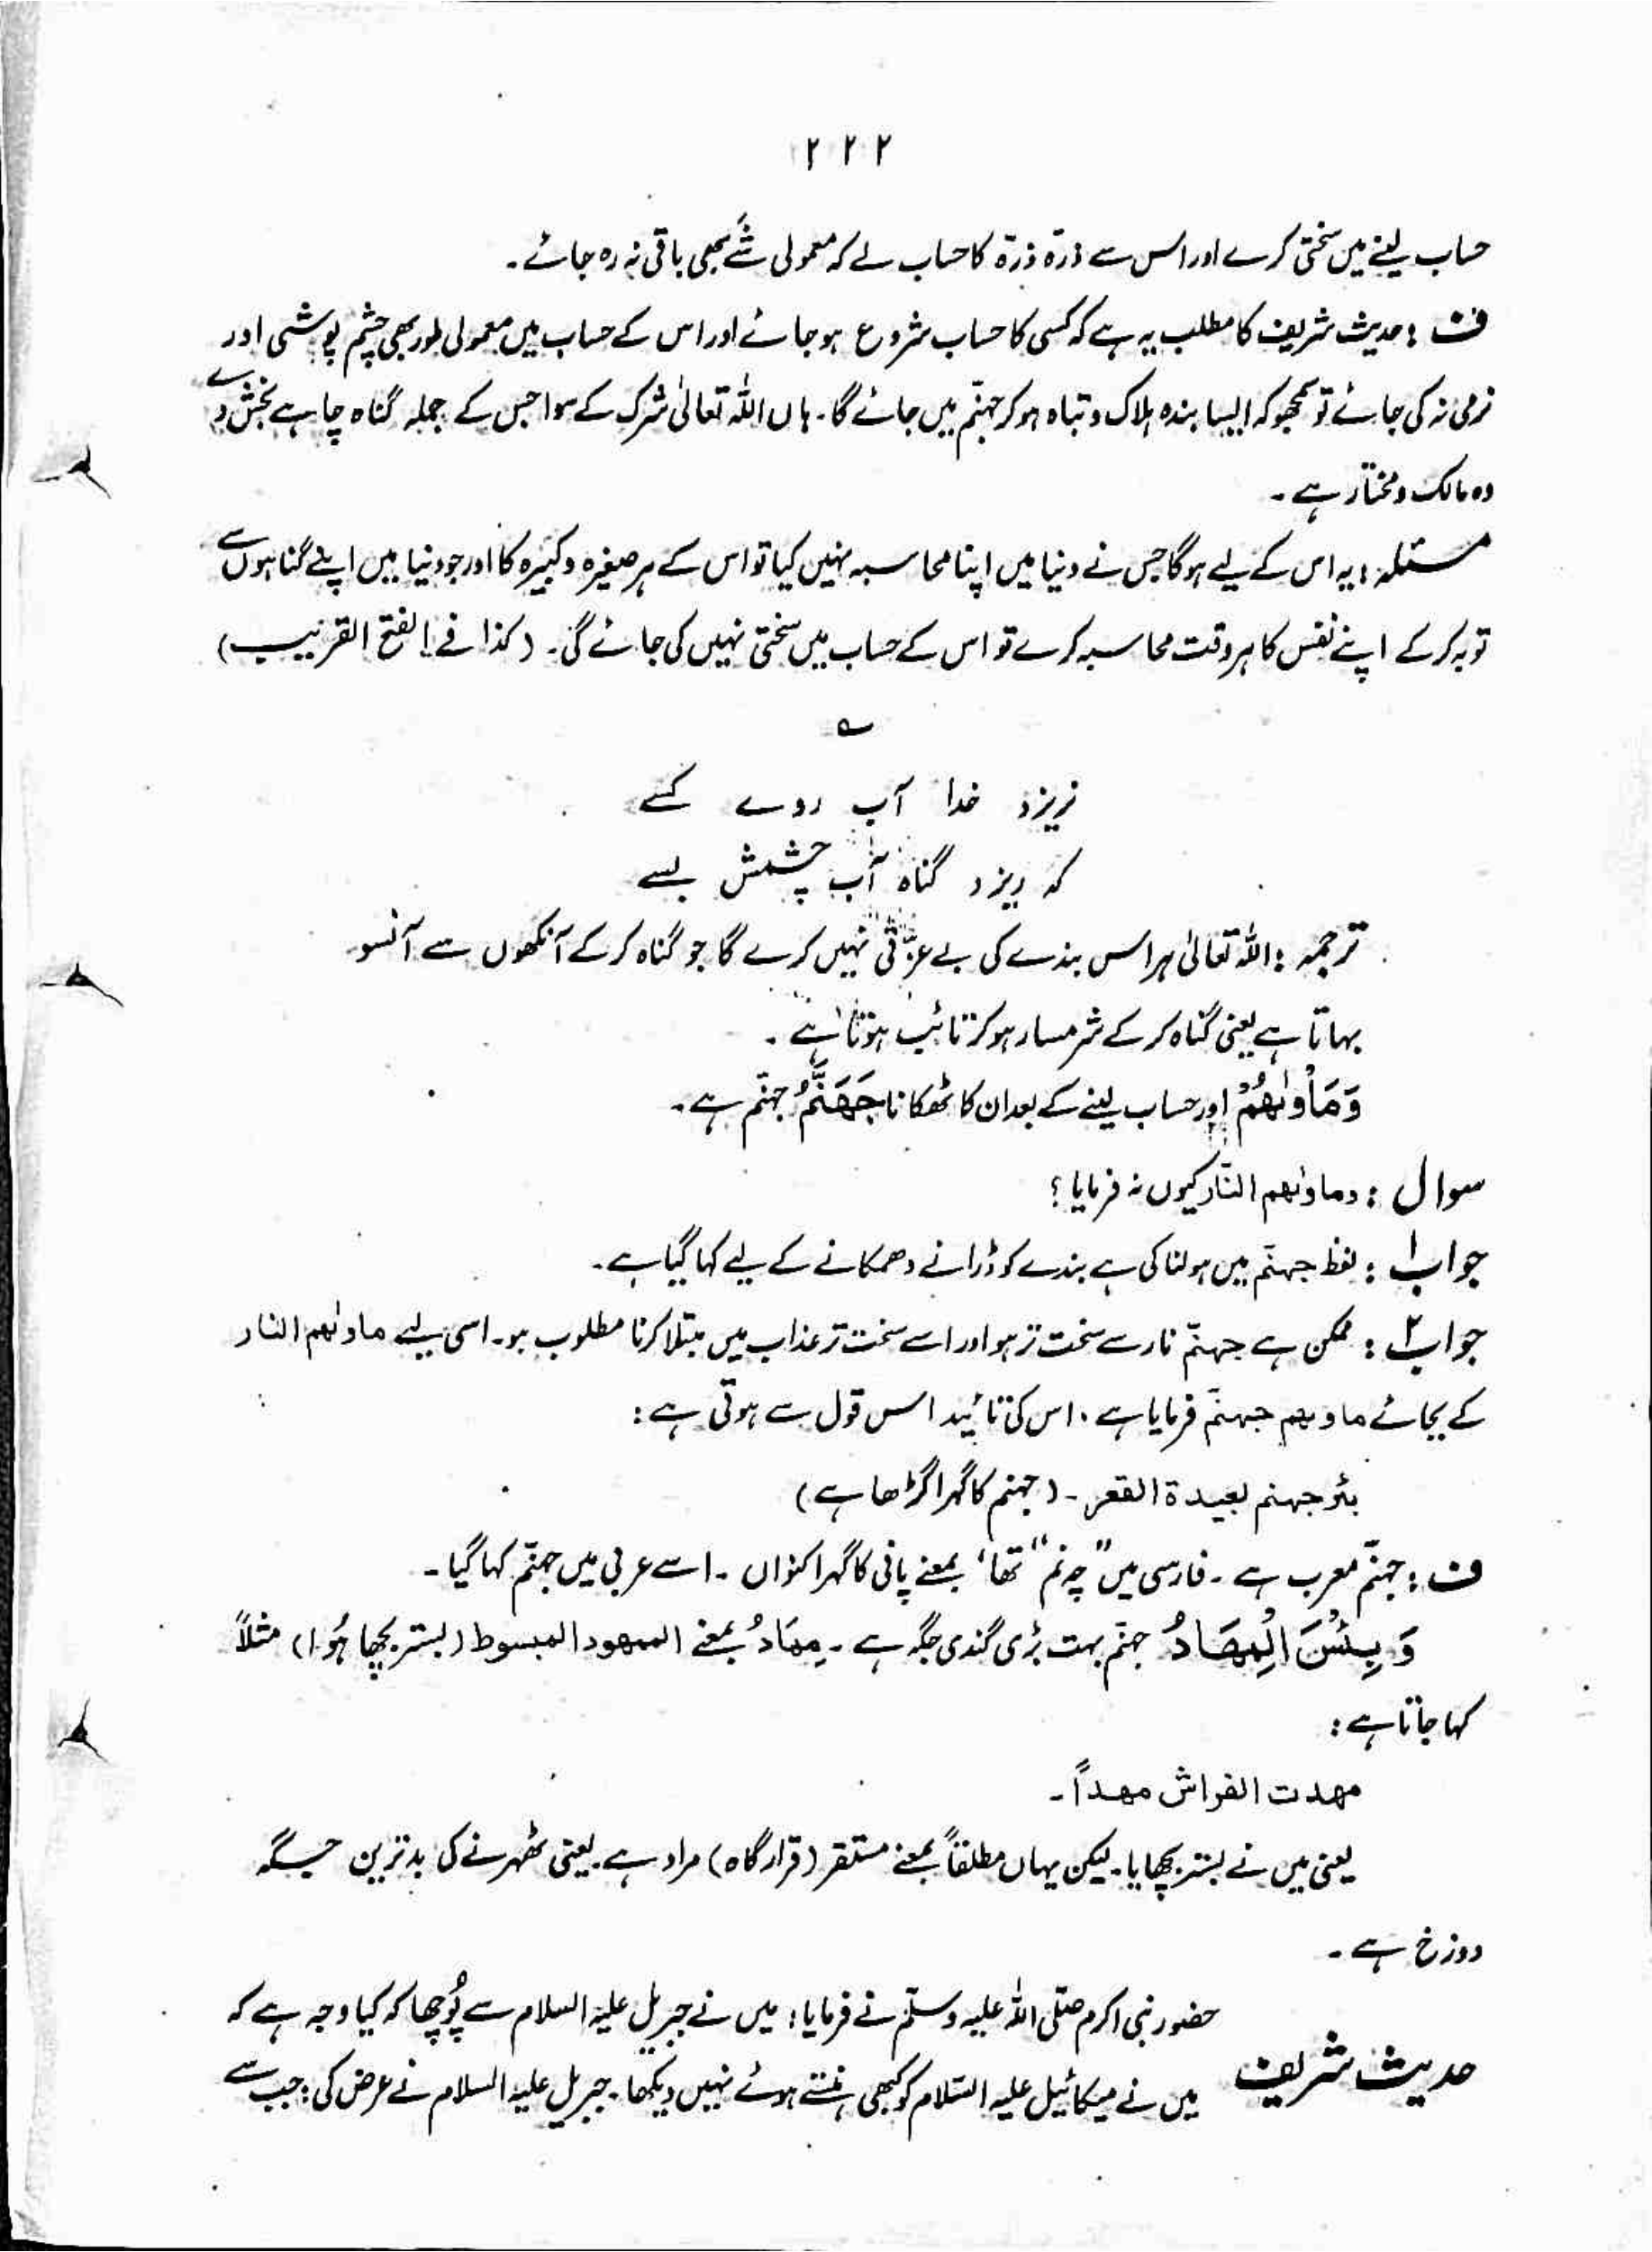 ۲۲۲
حساب لینے میں سختی کرے اور اس سے ذرّہ ذرّہ کا حساب لے کہ معمولی شے بھی باقی نہ رہ جائے۔
ف : حدیث شریف کا مطلب یہ ہے کہ کسی کا حساب شروع ہو جائے اور اس کے حساب میں معمولی طور بھی چشم پوشی اور
نرمی نہ کی جائے تو سمجھو کہ ایسا بندہ ہلاک و تباہ ہو کر جہنّم میں جائے گا۔ ہاں اللہ تعالیٰ شرک کے سوا جس کے جملہ گناہ چاہے بخش دے
وہ مالک و مختار ہے۔
مسئلہ : یہ اس کے لیے ہوگا جس نے دنیا میں اپنا محاسبہ نہیں کیا تو اس کے ہر صغیرہ و کبیرہ کا اور جو دنیا میں اپنے گناہوں سے
توبہ کر کے اپنے نفس کا ہر وقت محاسبہ کرے تو اس کے حساب میں سختی نہیں کی جائے گی۔ (کذا فے الفتح القریب)
؎
نریزد خدا آب روے کسے
کہ ریزد گناہ آب چشمش بسے
ترجمہ : اللہ تعالیٰ ہر اس بندے کی بے عزّتی نہیں کرے گا جو گناہ کر کے آنکھوں سے آنسو
بہاتا ہے یعنی گناہ کر کے شرمسار ہو کر تائب ہوتا ہے۔
وَمَاْوٰىهُمْ اور حساب لینے کے بعد ان کا ٹھکانا جَهَنَّمُ جہنّم ہے۔
سوال : وماوٰىهم النّار کیوں نہ فرمایا؟
جواب۱ : لفظ جہنّم میں ہولناکی ہے بندے کو ڈرانے دھمکانے کے لیے کہا گیا ہے۔
جواب۲ : ممکن ہے جہنّم نار سے سخت تر ہو اور اسے سخت تر عذاب میں مبتلا کرنا مطلوب ہو۔ اسی لیے ماوٰىهم النار
کے بجائے ماوىهم جهنّم فرمایا ہے۔ اس کی تائید اس قول سے ہوتی ہے :
بئر جهنم بعيدة القعر۔ (جہنم کا گہرا گڑھا ہے)
ف : جہنّم معرب ہے۔ فارسی میں "چہ نم" تھا، بمعنے پانی کا گہرا کنواں۔ اسے عربی میں جہنّم کہا گیا۔
وَ بِئْسَ الْمِهَادُ جہنّم بہت بڑی گندی جگہ ہے۔ مِهَادُ بمعنے الممهود المبسوط (بستر بچھا ہُوا) مثلاً
کہا جاتا ہے :
مهدت الفراش مهداً۔
یعنی میں نے بستر بچھایا۔ لیکن یہاں مطلقاً بمعنے مستقر (قرار گاہ) مراد ہے۔ یعنی ٹھہرنے کی بدترین جگہ
دوزخ ہے۔
حدیث شریف
حضور نبی اکرم صلّی اللہ علیہ وسلّم نے فرمایا : میں نے جبریل علیہ السلام سے پُوچھا کہ کیا وجہ ہے کہ
میں نے میکائیل علیہ السّلام کو کبھی ہنستے ہوئے نہیں دیکھا۔ جبریل علیہ السلام نے عرض کی : جب سے